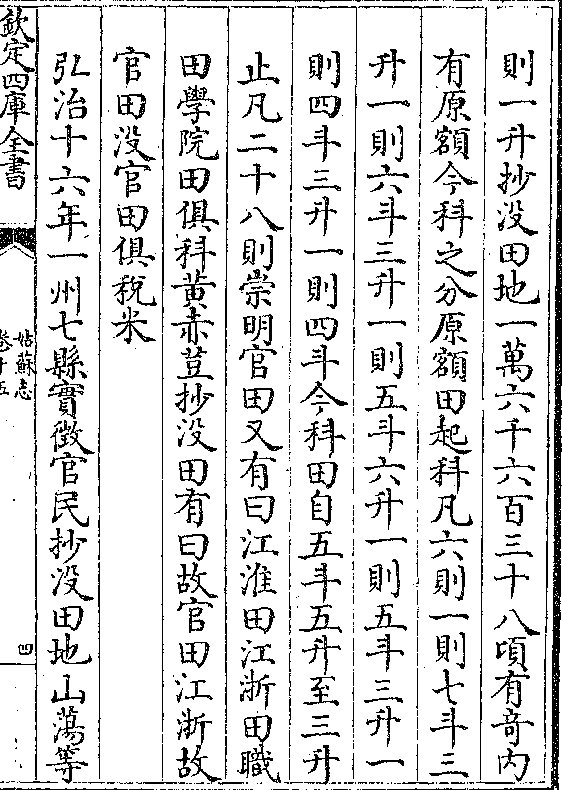 則一升抄没田地一萬六千六百三十八頃有竒内
有原額今科之分原額田起科凡六則一則七斗三
升一則六斗三升一則五斗六升一則五斗三升一
則四斗三升一則四斗今科田自五斗五升至三升
止凡二十八則崇明官田又有曰江淮田江浙田職
田學院田俱科黄赤荳抄没田有曰故官田江浙故
官田没官田俱稅米
弘治十六年一州七縣實徵官民抄没田地山蕩等
欽定四庫全書
姑蘇志
卷十五
四